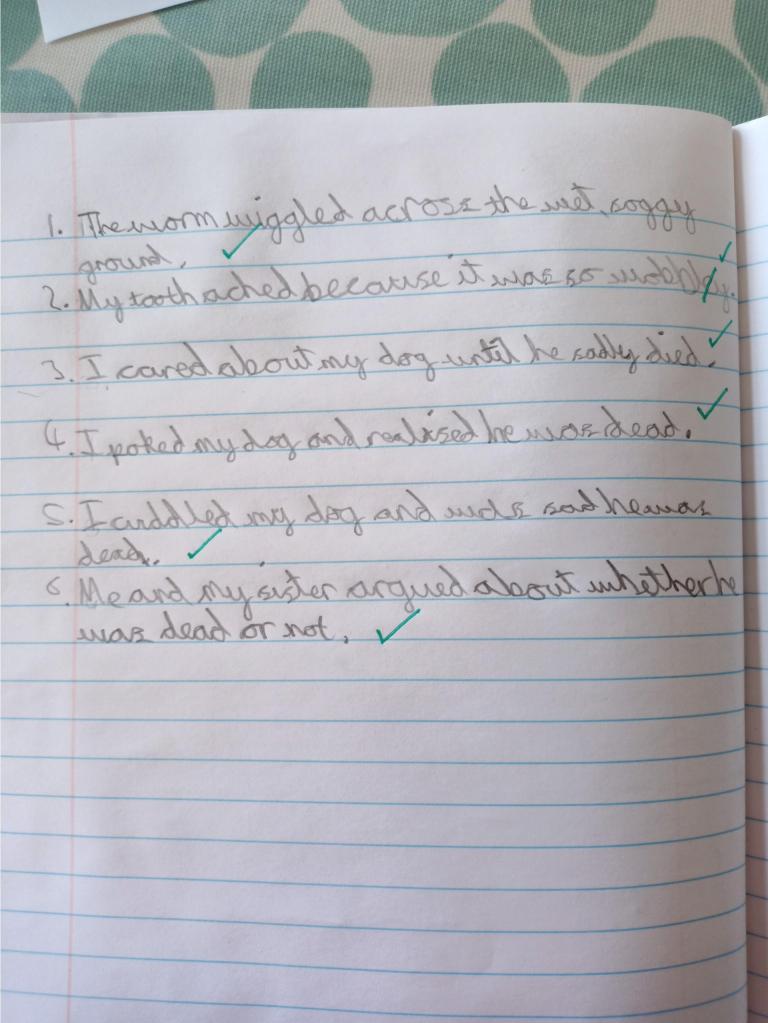 1. The worm wiggled across the wet, soggy
ground.
2. My tooth ached because it was so wobbly.
3. I cared about my dog until he sadly died.
4. I poked my dog and realised he was dead.
5. I cuddled my dog and was sad he was
dead.
6. Me and my sister argued about whether he
was dead or not.